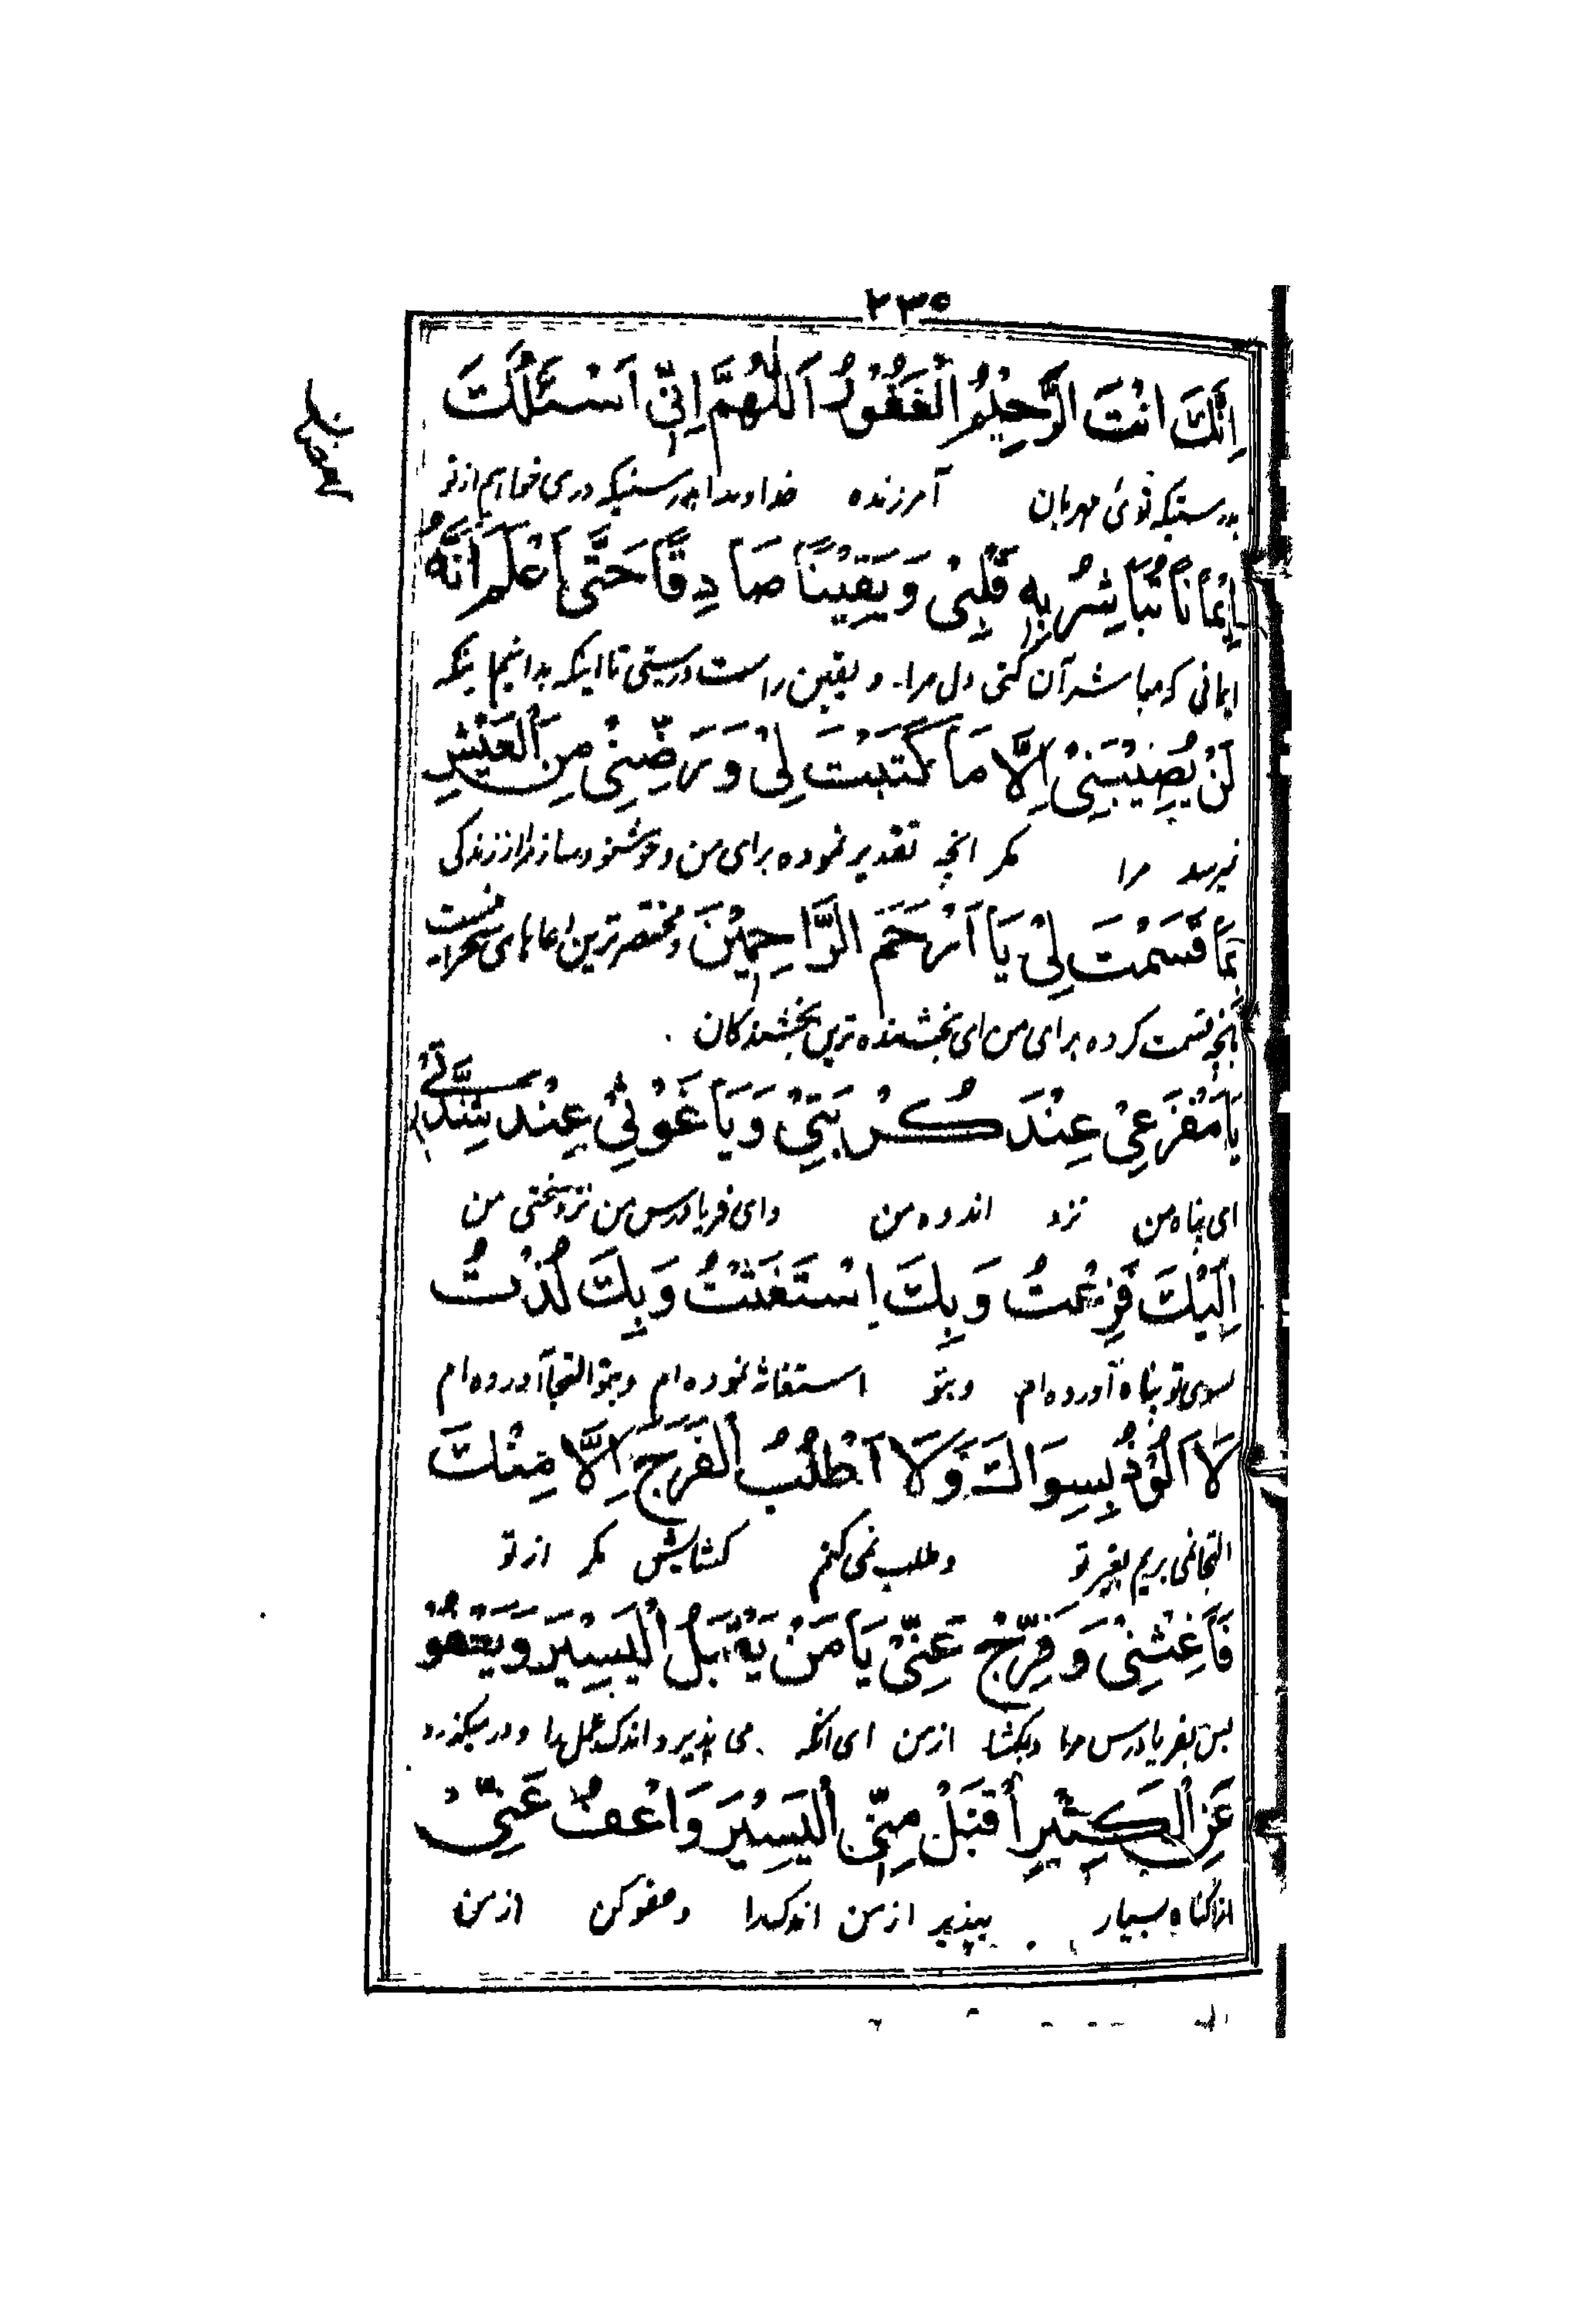 ۲۳۵
اِنَّكَ اَنْتَ الرَّحِیْمُ الْغَفُوْرُ اَللّٰهُمَّ اِنِّیْ اَسْئَلُكَ
بدرستیکه توئی مهربان آمرزنده خداوندا بدرستیکه درمی خواهم از تو
اِیْمَانًا تُبَاشِرُ بِهٖ قَلْبِیْ وَ یَقِیْنًا صَادِقًا حَتّٰی اَعْلَمَ اَنَّهُ
ایمانی که مباشر آن کنی دل مرا و یقین راست درستی تا اینکه بدانم اینکه
لَنْ یُصِیْبَنِیْ اِلَّا مَا كَتَبْتَ لِیْ وَ رَضِّنِیْ مِنَ الْعَیْشِ
نمیرسد مرا مکر انچه تقدیر نموده برای من و خوشنود ساز مرا از زندکی
بِمَا قَسَمْتَ لِیْ یَا اَرْحَمَ الرَّاحِمِیْنَ و مختصر ترین دعاهای سحر اینست
بانچه قسمت کرده برای من ای بخشنده ترین بخشندکان
یَا مَفْزَعِیْ عِنْدَ كُرْبَتِیْ وَ یَا غَوْثِیْ عِنْدَ شِدَّتِیْ
ای پناه من نزد اندوه من و ای فریادرس من نزد سختی من
اِلَیْكَ فَزِعْتُ وَ بِكَ اِسْتَغَثْتُ وَ بِكَ لُذْتُ
بسوی تو پناه آورده ام و بتو استغاثه نموده ام و بتو التجا آورده ام
لَا اَلُوْذُ بِسِوَاكَ وَ لَا اَطْلُبُ الْفَرَجَ اِلَّا مِنْكَ
التجا نمی بریم بغیر تو و طلب نمی کنم کشایش مکر از تو
فَاَغِثْنِیْ وَ فَرِّجْ عَنِّیْ یَا مَنْ یَقْبَلُ الْیَسِیْرَ وَ یَعْفُوْ
پس بفریادرس مرا و بکشا از من ای انکه می پذیرد اندک عمل را و در میکذرد
عَنِ الْكَثِیْرِ اُقْبَلْ مِنِّی الْیَسِیْرَ وَ اعْفُ عَنِّیْ
از کناه بسیار بپذیر از من اندک را و عفو کن از من